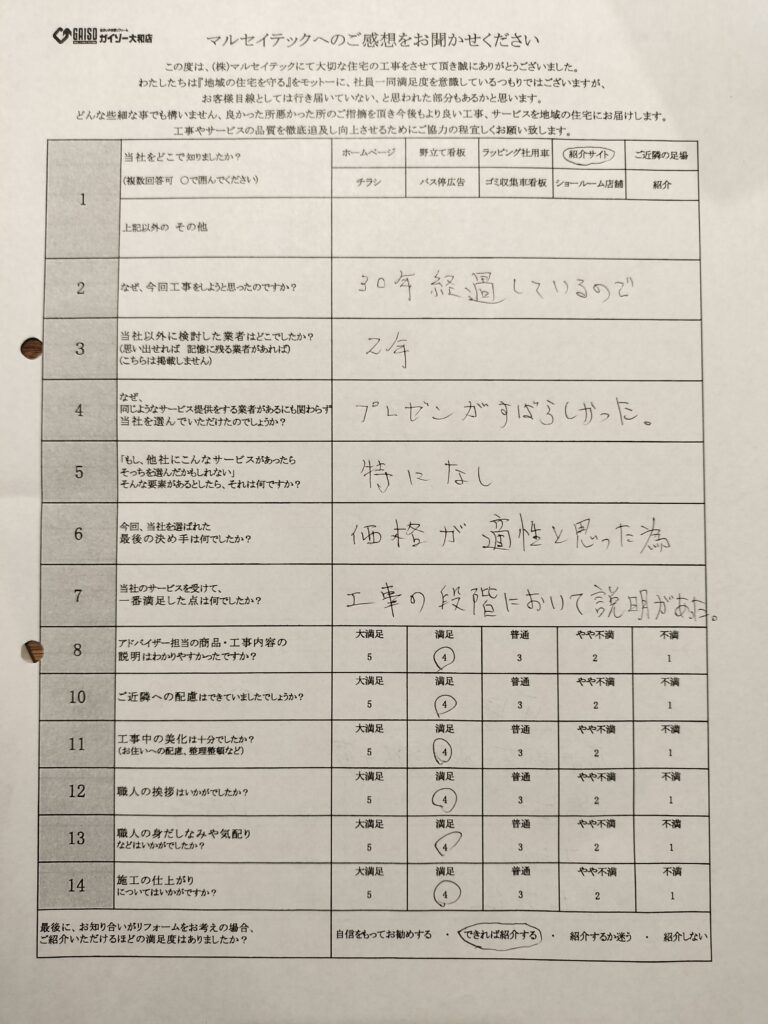 GAISO
ガイソー大和店
マルセイテックへのご感想をお聞かせください
この度は、(株)マルセイテックにて大切な住宅の工事をさせて頂き誠にありがとうございました。
わたしたちは『地域の住宅を守る』をモットーに、社員一同満足度を意識しているつもりではございますが、
お客様目線としては行き届いていない、と思われた部分もあるかと思います。
どんな些細な事でも構いません、良かった所悪かった所のご指摘を頂き今後もより良い工事、サービスを地域の住宅にお届けします。
工事やサービスの品質を徹底追及し向上させるためにご協力の程宜しくお願い致します。
1
当社をどこで知りましたか?
(複数回答可 ○で囲んでください)
ホームページ 野立て看板 ラッピング社用車 紹介サイト ご近隣の足場
チラシ バス停広告 ゴミ収集車看板 ショールーム店舗 紹介
上記以外の その他
2
なぜ、今回工事をしようと思ったのですか?
30年経過しているので
3
当社以外に検討した業者はどこでしたか?
(思い出せれば 記憶に残る業者があれば)
(こちらは掲載しません)
2年
4
なぜ、
同じようなサービス提供をする業者があるにも関わらず
当社を選んでいただけたのでしょうか?
プレゼンがすばらしかった。
5
「もし、他社にこんなサービスがあったら
そっちを選んだかもしれない」
そんな要素があるとしたら、それは何ですか?
特になし
6
今回、当社を選ばれた
最後の決め手は何でしたか?
価格が適性と思った為
7
当社のサービスを受けて、
一番満足した点は何でしたか?
工事の段階において説明があった。
8
アドバイザー担当の商品・工事内容の
説明はわかりやすかったですか?
大満足 満足 普通 やや不満 不満
5 4 3 2 1
10
ご近隣への配慮はできていましたでしょうか?
大満足 満足 普通 やや不満 不満
5 4 3 2 1
11
工事中の美化は十分でしたか?
(お住いへの配慮、整理整頓など)
大満足 満足 普通 やや不満 不満
5 4 3 2 1
12
職人の挨拶はいかがでしたか?
大満足 満足 普通 やや不満 不満
5 4 3 2 1
13
職人の身だしなみや気配り
などはいかがでしたか?
大満足 満足 普通 やや不満 不満
5 4 3 2 1
14
施工の仕上がり
についてはいかがですか?
大満足 満足 普通 やや不満 不満
5 4 3 2 1
最後に、お知り合いがリフォームをお考えの場合、
ご紹介いただけるほどの満足度はありましたか?
自信をもってお勧めする ・ できれば紹介する ・ 紹介するか迷う ・ 紹介しない